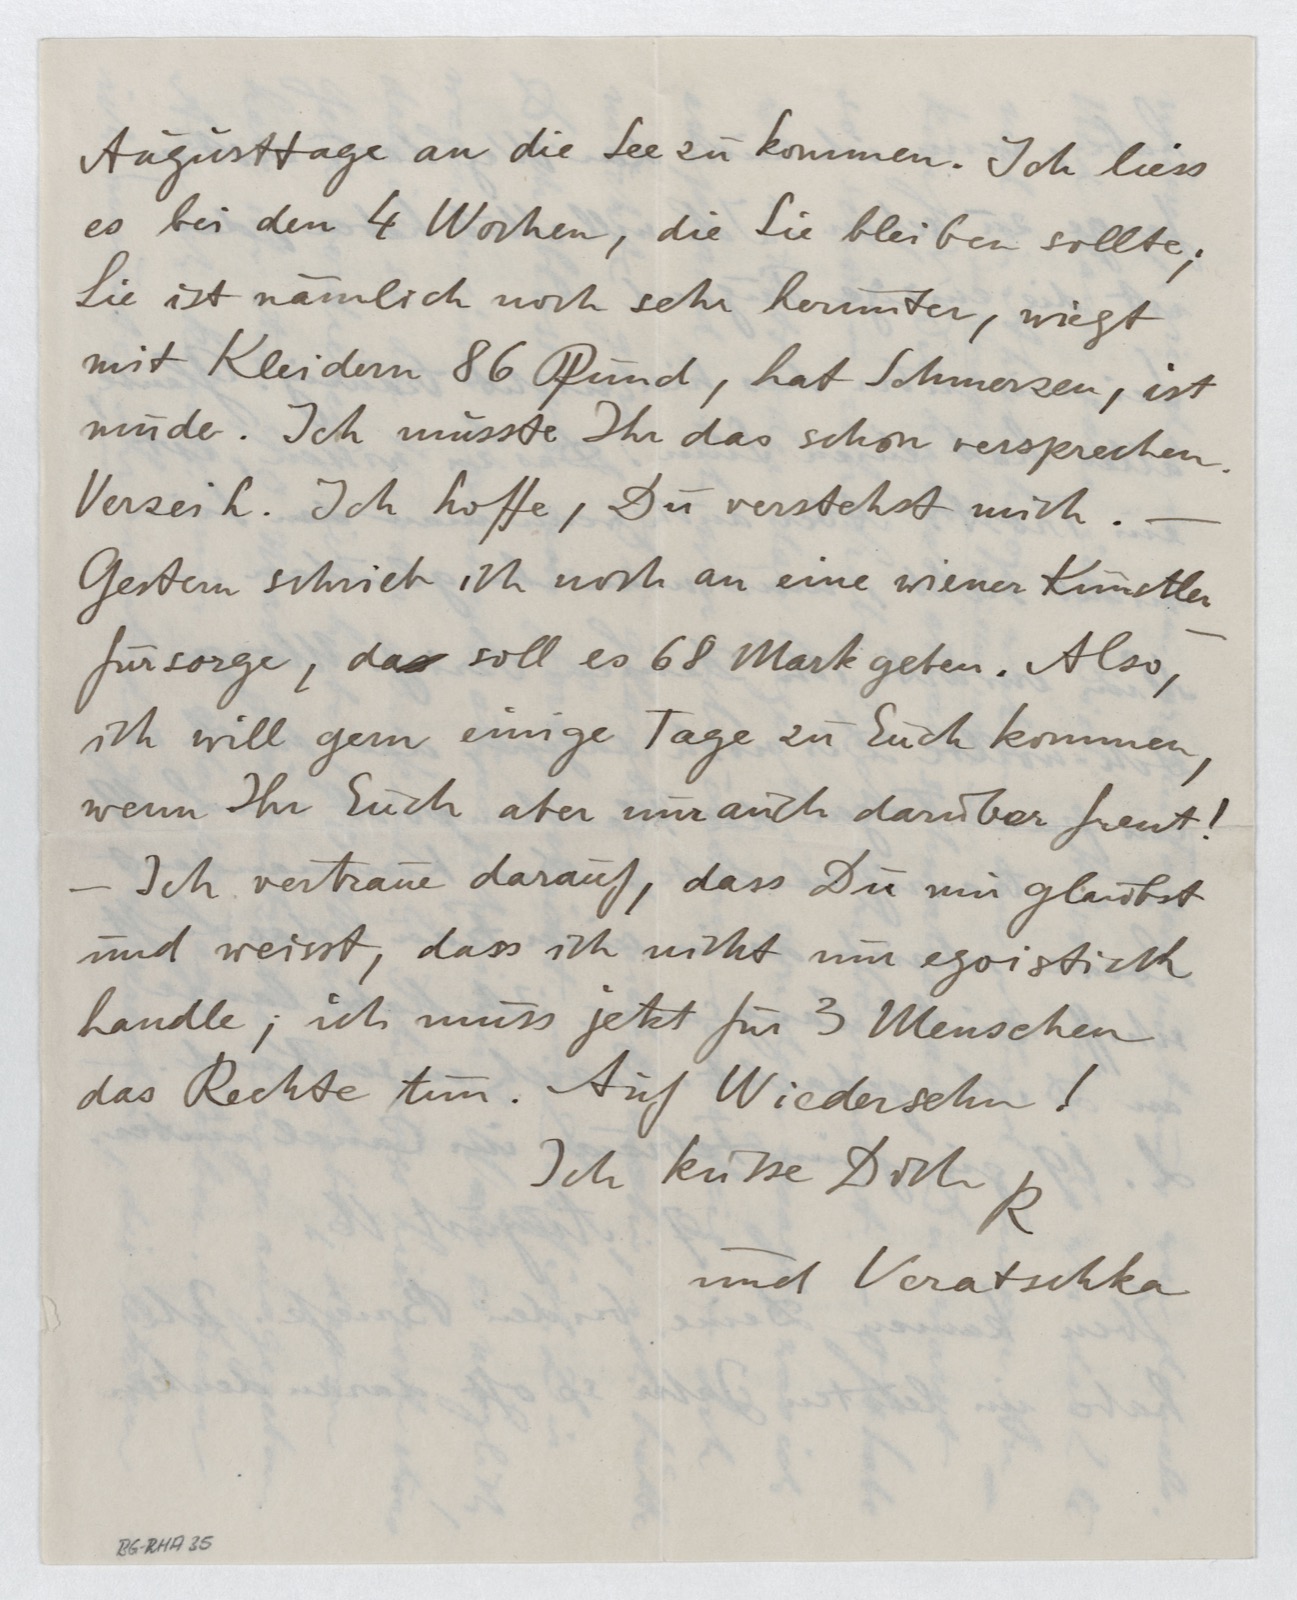 Augusttage an die See zu kommen. Ich liess
es bei den 4 Wochen, die Sie bleiben sollte;
Sie ist nämlich noch sehr herunter, wiegt
mit Kleidern 86 Pfund, hat Schmerzen, ist
müde. Ich musste Ihr das schon versprechen.
Verzeih. Ich hoffe, Du verstehst mich. —
Gestern schrieb ich noch an eine wiener Künstler
fürsorge, das soll es 68 Mark geben. Also,
ich will gern einige Tage zu Euch kommen,
wenn Ihr Euch aber nur auch darüber freut!
— Ich vertraue darauf, dass Du mir glaubst
und weisst, dass ich nicht nur egoistisch
handle; ich muss jetzt für 3 Menschen
das Rechte tun. Auf Wiedersehn!
Ich küsse Dich
R
und Veratschka
BG-RHA 35